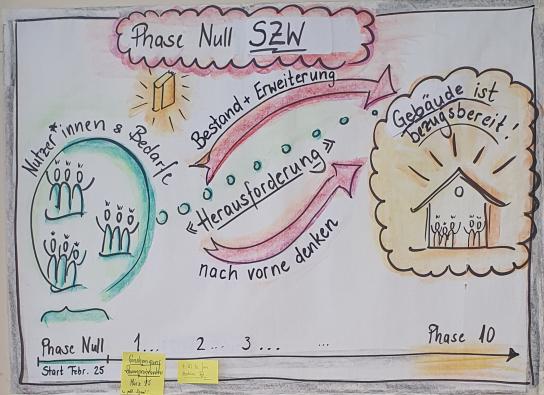 Phase Null SZW
Nutzer*innen & Bedarfe
Bestand + Erweiterung
«Herausforderung»
nach vorne denken
Gebäude ist
bezugsbereit!
Phase Null 1... 2... 3... ... Phase 10
Start Febr. 25